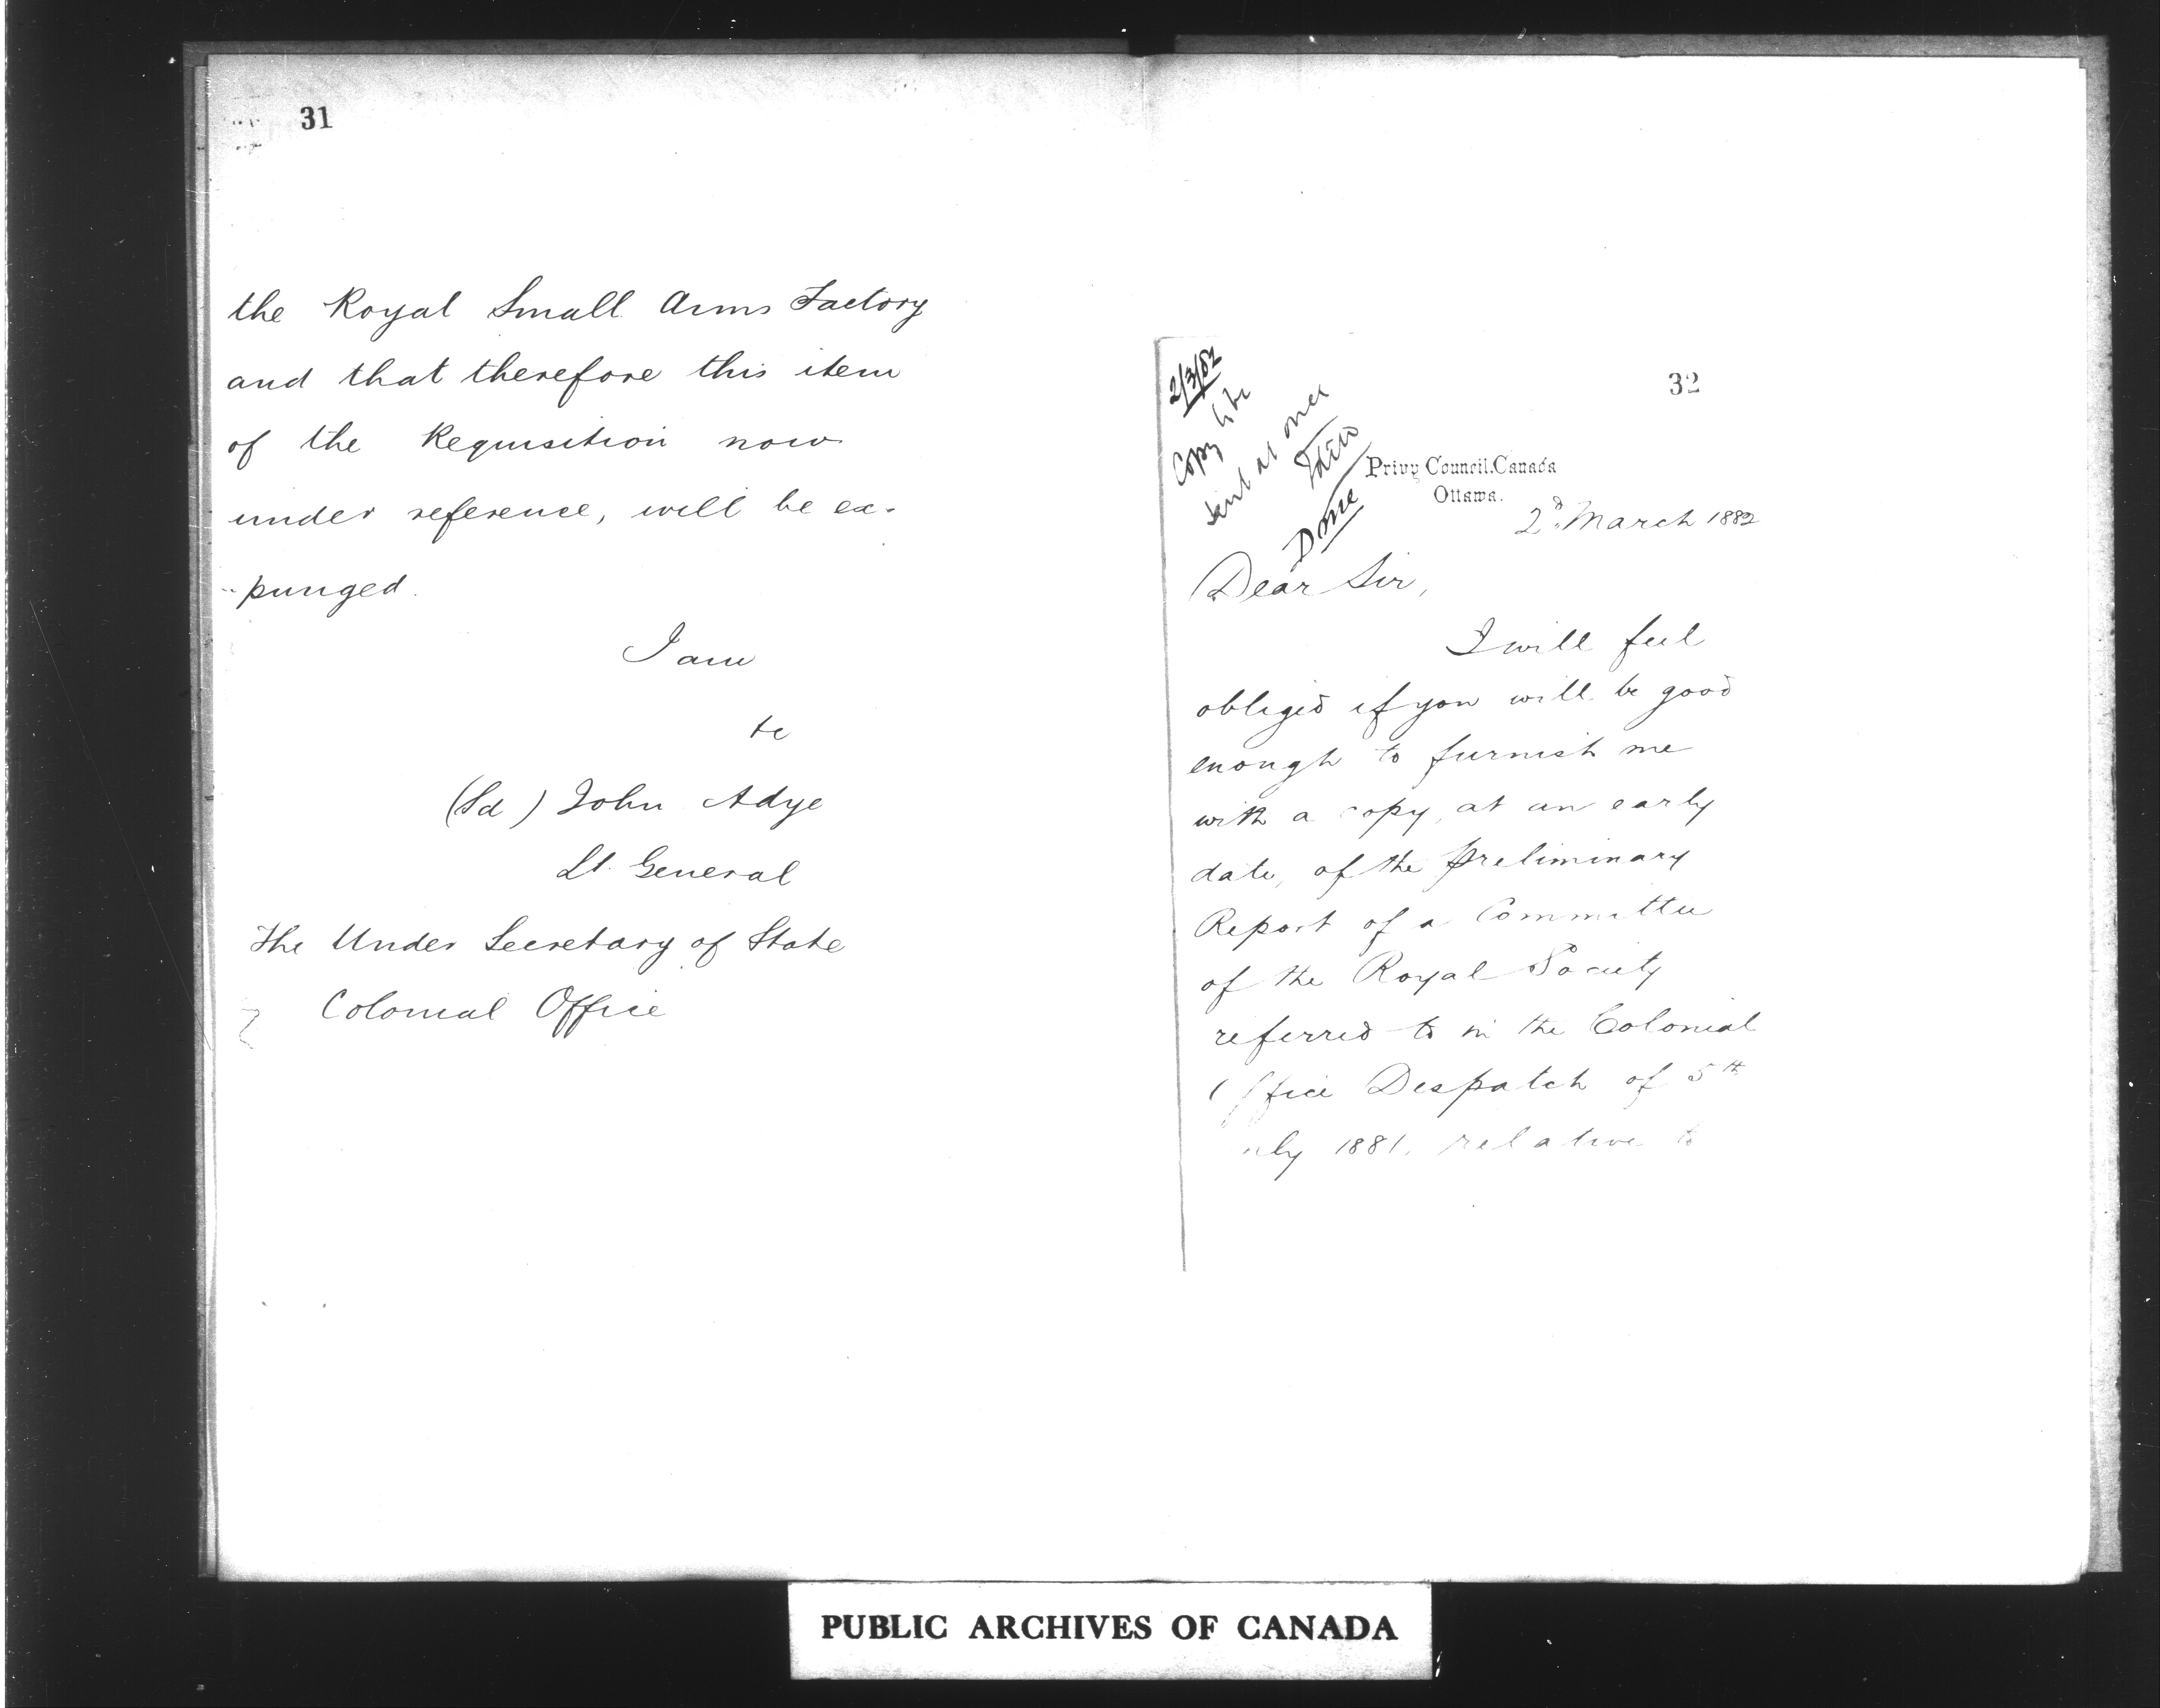 31
the Royal Small Arms Factory
and that therefore this item
of the Requisition now
under reference, will be ex-
-punged.
I am
&c
(Sd) John Adye
Lt. General
The Under Secretary of State
Colonial Office
32
2/3/82
Copy to be
sent at once
Done
Privy Council, Canada
Ottawa.
2d. March 1882
Dear Sir,
I will feel
obliged if you will be good
enough to furnish me
with a copy, at an early
date, of the preliminary
Report of a Committee
of the Royal Society
referred to in the Colonial
Office Despatch of 5th
uly 1881, relative to
PUBLIC ARCHIVES OF CANADA